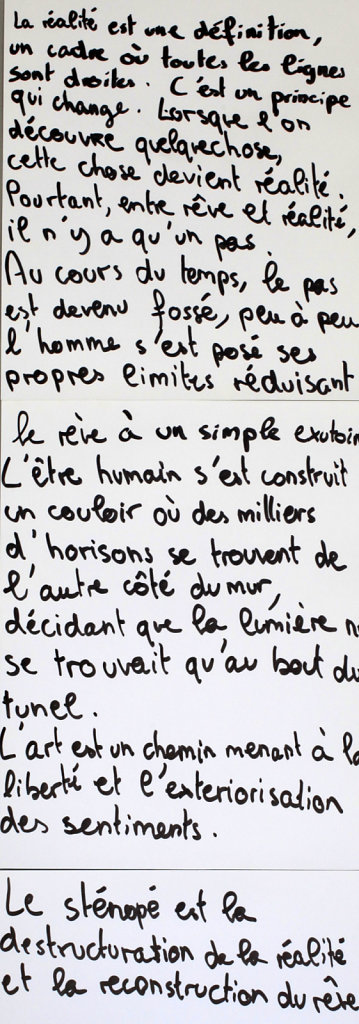 La réalité est une définition,
un cadre où toutes les lignes
sont droites. C'est un principe
qui change. Lorsque l'on
découvre quelquechose,
cette chose devient réalité.
Pourtant, entre rêve et réalité,
il n'y a qu'un pas.
Au cours du temps, le pas
est devenu fossé, peu à peu
l'homme s'est posé ses
propres limites réduisant
le rêve à un simple exutoir
L'être humain s'est construit
un couloir où des milliers
d'horisons se trouvent de
l'autre côté du mur,
décidant que la lumière n
se trouvait qu'au bout du
tunel.
L'art est un chemin menant à la
liberté et l'exteriorisation
des sentiments.
Le sténopé est la
destructuration de la réalité
et la reconstruction du rêve